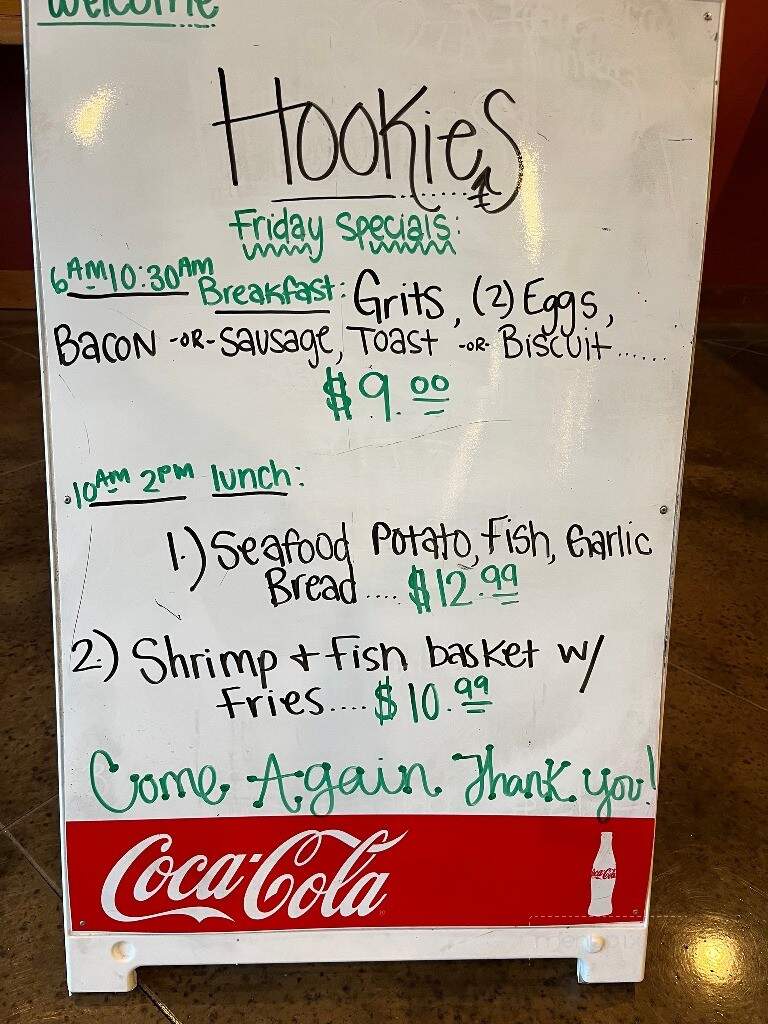 Welcome
HookieS
Friday Specials:
6AM 10:30AM Breakfast: Grits, (2) Eggs,
Bacon -OR- Sausage, Toast -OR- Biscuit......
$9.00
10AM 2PM lunch:
1.) Seafood Potato, Fish, Garlic
Bread.... $12.99
2.) Shrimp + Fish basket w/
Fries.... $10.99
Come Again Thank you!
Coca-Cola
Coca-Cola